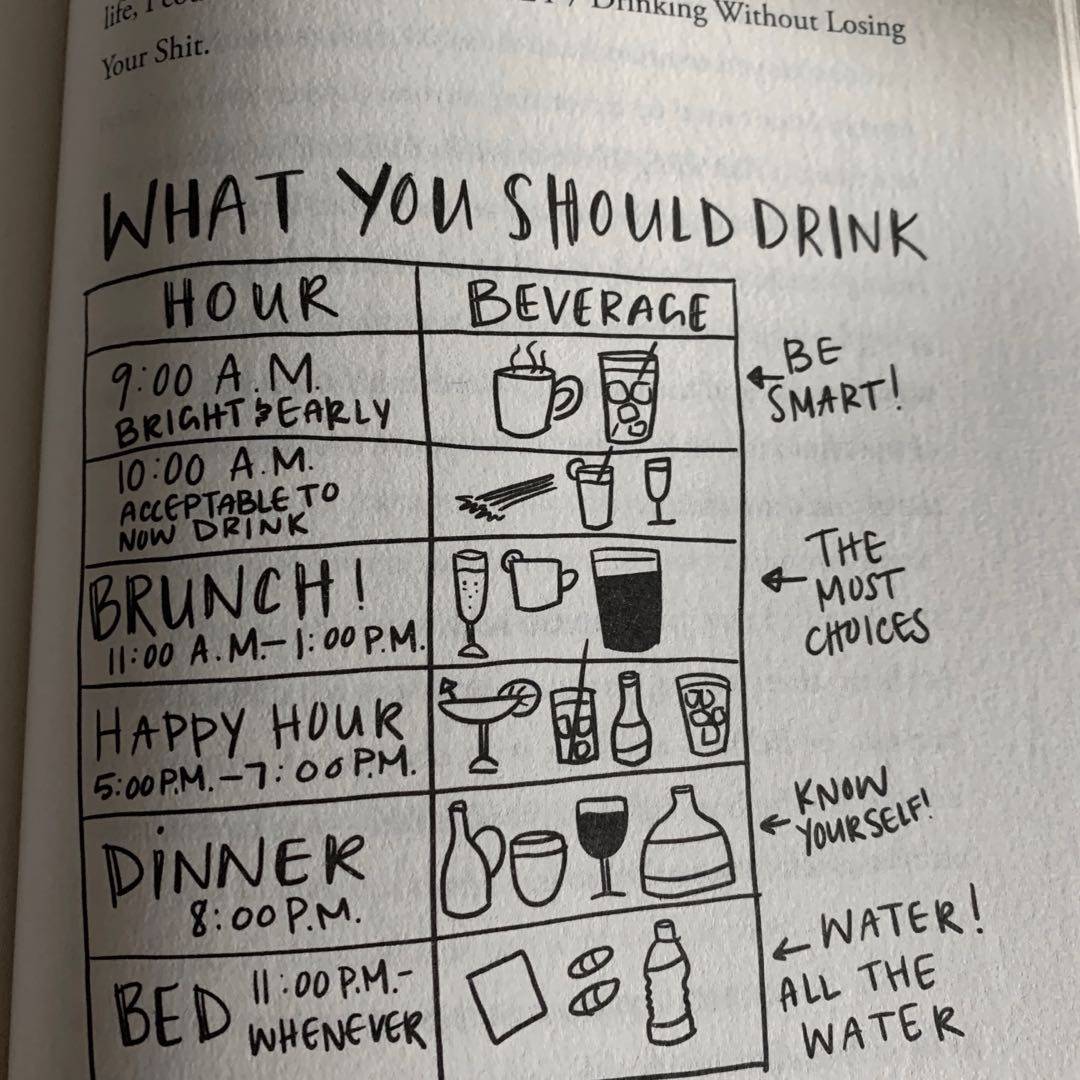 life, I
Drinking Without Losing
Your Shit.
WHAT YOU SHOULD DRINK
HOUR BEVERAGE
9:00 A.M.
BRIGHT & EARLY
BE
SMART!
10:00 A.M.
ACCEPTABLE TO
NOW DRINK
BRUNCH!
11:00 A.M.-1:00 P.M.
THE
MOST
CHOICES
HAPPY HOUR
5:00 P.M.-7:00 P.M.
DINNER
8:00 P.M.
KNOW
YOURSELF!
BED 11:00 P.M.-
WHENEVER
WATER!
ALL THE
WATER